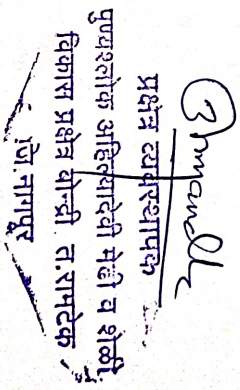 प्रक्षेत्र व्यवस्थापक
पुण्यश्लोक अहिल्यादेवी मेंढी व शेळी
विकास प्रक्षेत्र बोन्द्री त.रामटेक
जि.नागपूर